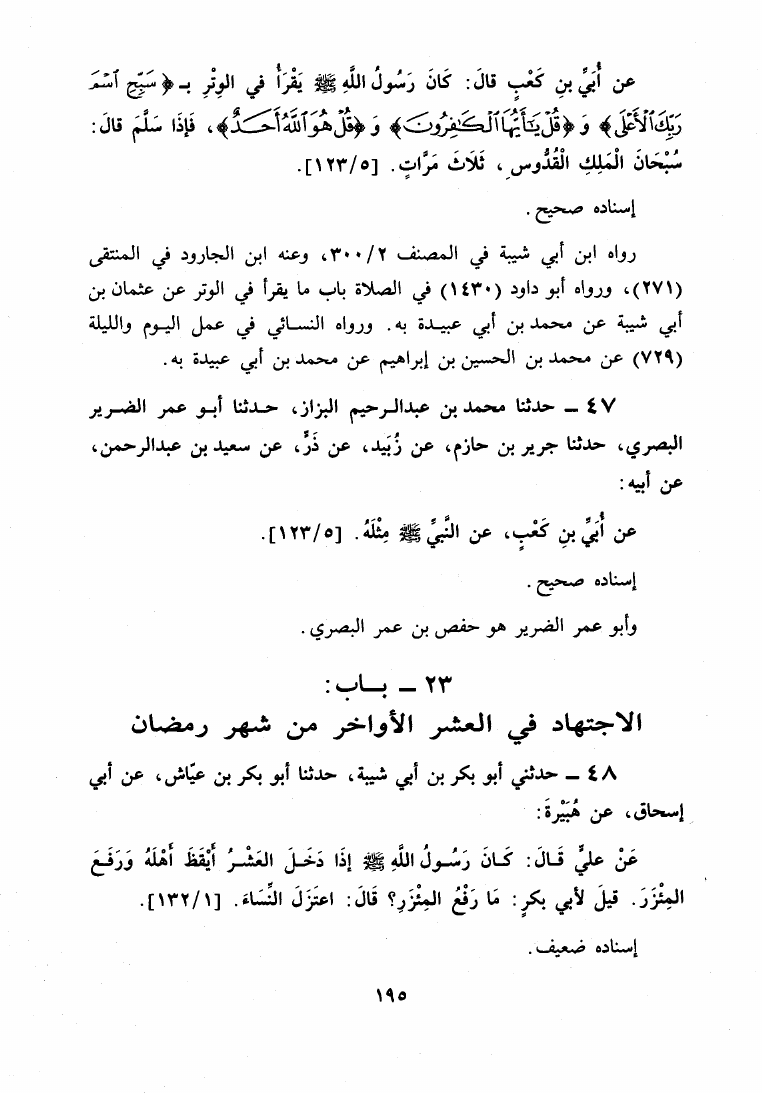 عن أُبَيِّ بنِ كَعْبٍ قالَ: كَانَ رَسُولُ اللَّهِ ﷺ يَقْرَأُ في الوِتْرِ بـ ﴿سَبِّحِ ٱسْمَ
رَبِّكَ ٱلْأَعْلَى﴾ وَ ﴿قُلْ يَٰٓأَيُّهَا ٱلْكَٰفِرُونَ﴾ وَ ﴿قُلْ هُوَ ٱللَّهُ أَحَدٌ﴾، فَإِذَا سَلَّمَ قالَ:
سُبْحَانَ الْمَلِكِ الْقُدُّوسِ، ثَلَاثَ مَرَّاتٍ. [١٢٣/٥].
إسناده صحيح.
رواه ابن أبي شيبة في المصنف ٣٠٠/٢، وعنه ابن الجارود في المنتقى
(٢٧١)، ورواه أبو داود (١٤٣٠) في الصلاة باب ما يقرأ في الوتر عن عثمان بن
أبي شيبة عن محمد بن أبي عبيدة به. ورواه النسائي في عمل اليوم والليلة
(٧٢٩) عن محمد بن الحسين بن إبراهيم عن محمد بن أبي عبيدة به.
٤٧ ـ حدثنا محمد بن عبدالرحيم البزاز، حدثنا أبو عمر الضرير
البصري، حدثنا جرير بن حازم، عن زُبَيد، عن ذَرٍّ، عن سعيد بن عبدالرحمن،
عن أبيه:
عن أُبَيِّ بنِ كَعْبٍ، عن النَّبيِّ ﷺ مِثْلَهُ. [١٢٣/٥].
إسناده صحيح.
وأبو عمر الضرير هو حفص بن عمر البصري.
٢٣ ـ بـاب:
الاجتهاد في العشر الأواخر من شهر رمضان
٤٨ ـ حدثني أبو بكر بن أبي شيبة، حدثنا أبو بكر بن عيّاش، عن أبي
إسحاق، عن هُبَيْرةَ:
عَنْ عليٍّ قَالَ: كَانَ رَسُولُ اللَّهِ ﷺ إِذَا دَخَلَ العَشْرُ أَيْقَظَ أَهْلَهُ وَرَفَعَ
المِئْزَرَ. قيلَ لأبي بكرٍ: مَا رَفْعُ المِئْزَرِ؟ قَالَ: اعتَزَلَ النِّسَاءَ. [١٣٢/١].
إسناده ضعيف.
١٩٥